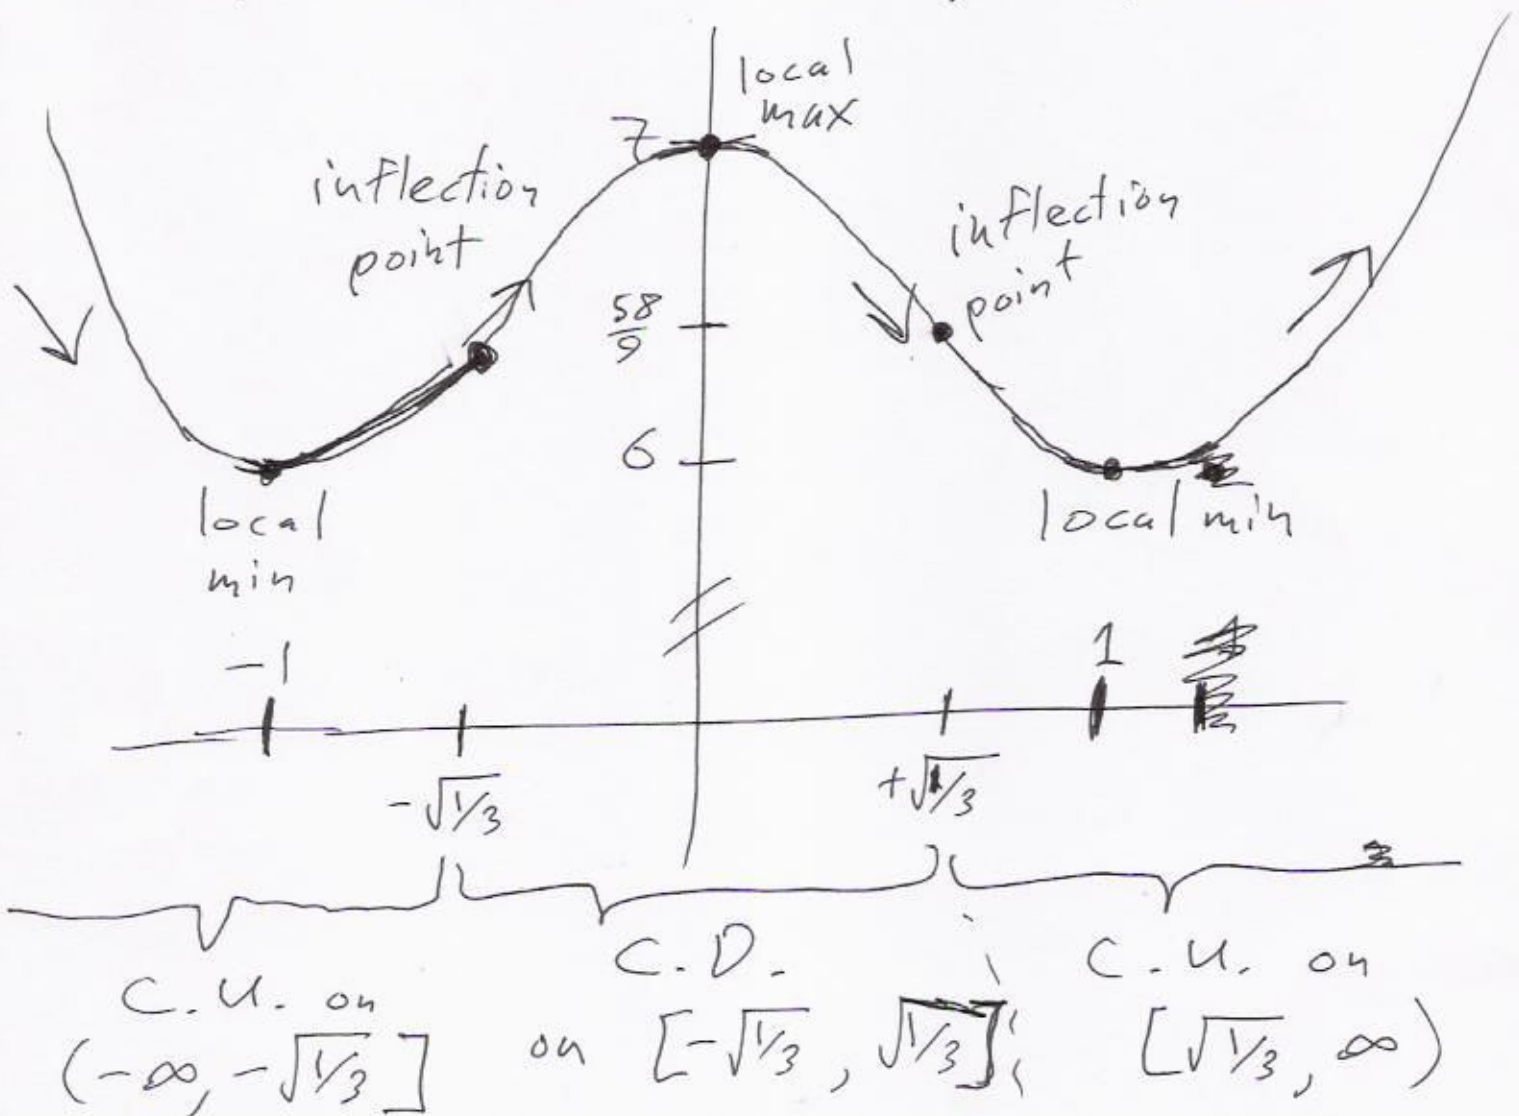 local
max
7
inflection
point
inflection
point
58
9
6
local
min
local min
-1
1
-√1/3
+√1/3
C.U. on
(-∞, -√1/3]
C.D.
on [-√1/3, √1/3]
C.U. on
[√1/3, ∞)